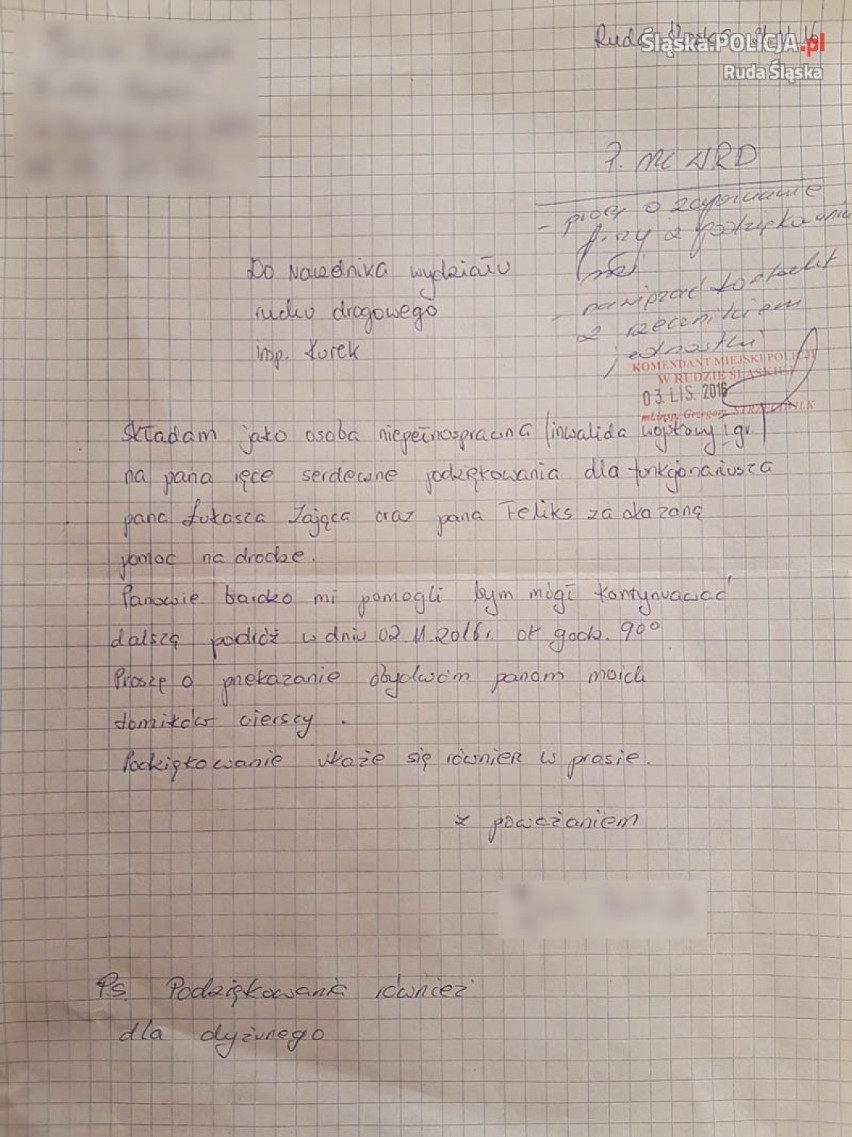 Ruda Śląska
Śląska.POLICJA.pl
Ruda Śląska
P. NWRD
- proszę o zapoznanie
z podziękowaniami
- nawiązać kontakt
z rzecznikiem
jednostki
Do Naczelnika wydziału
ruchu drogowego
insp. Kurek
KOMENDANT MIEJSKI POLICJI
W RUDZIE ŚLĄSKIEJ
03. LIS. 2016
mł. insp. Grzegorz
Składam jako osoba niepełnosprawna (inwalida wojskowy I gr)
na pana ręce serdeczne podziękowania dla funkcjonariusza
pana Łukasza Zająca oraz pana Feliks za okazaną
pomoc na drodze.
Panowie bardzo mi pomogli bym mógł kontynuować
dalszą podróż w dniu 02.11.2016r. ok godz. 9⁰⁰
Proszę o przekazanie obydwóm panom moich
.
Podziękowanie ukaże się również w prasie.
z poważaniem
Ps. Podziękowania również
dla dyżurnego